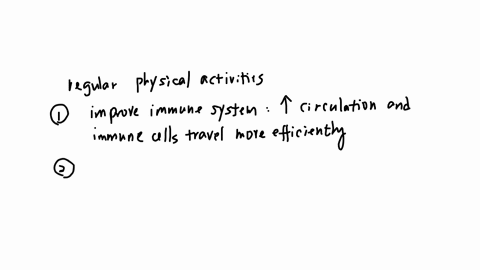 regular physical activities
① improve immune system : ↑ circulation and
immune cells travel more efficiently
②